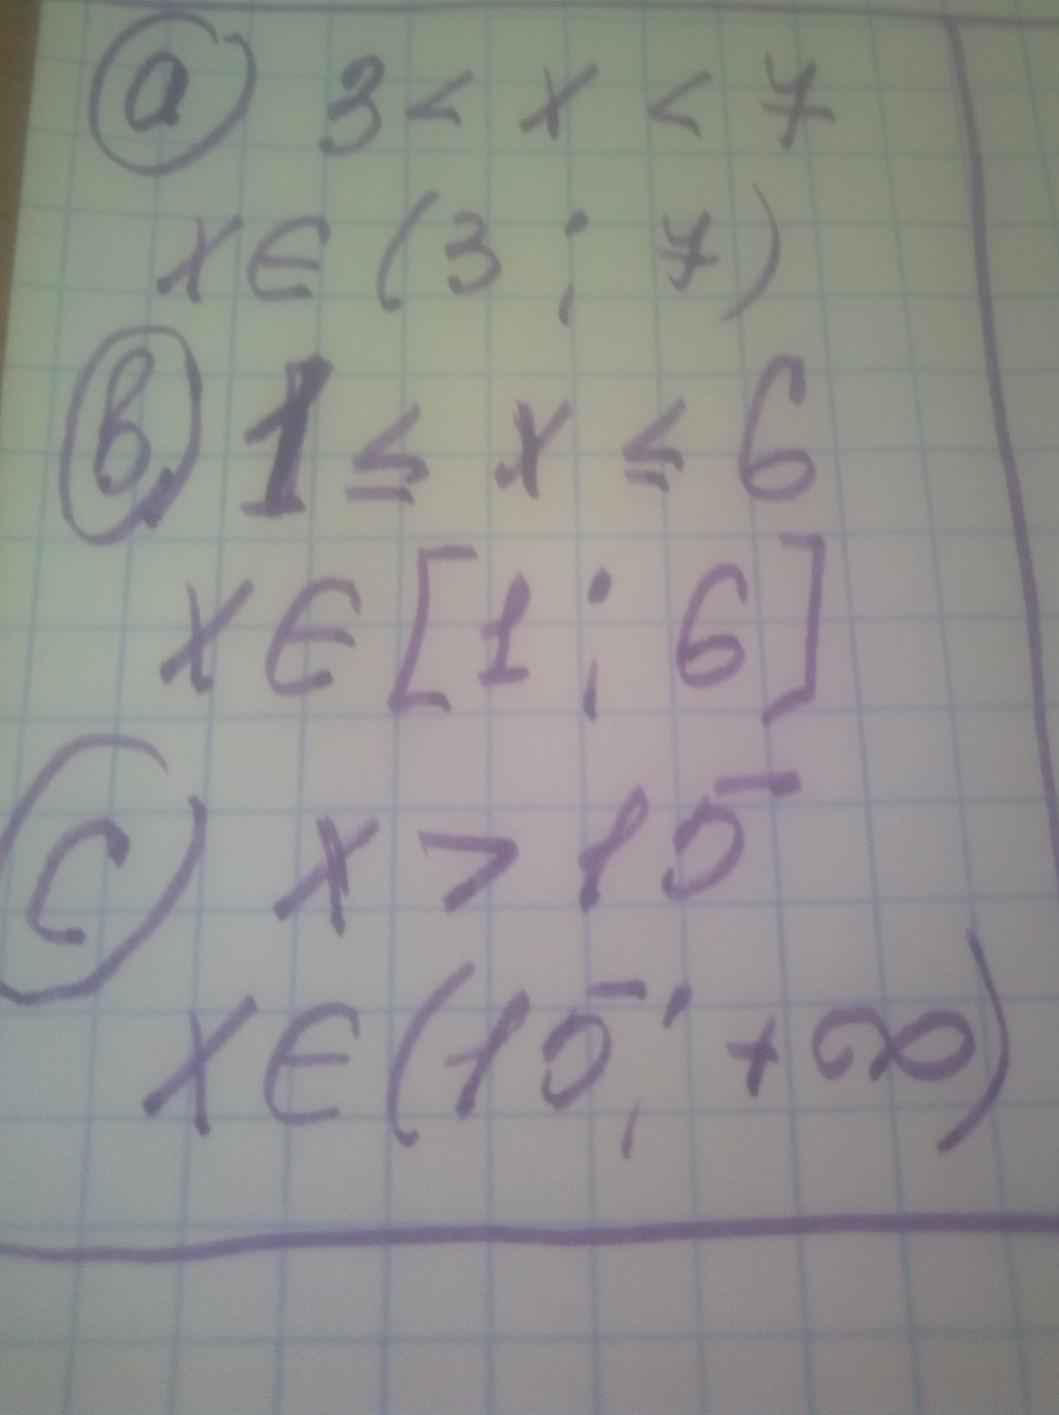 a 3 < x < 7
x ∈ (3 ; 7)
b, 1 ≤ x ≤ 6
x ∈ [1 ; 6]
c x > 15
x ∈ (15 ; +∞)